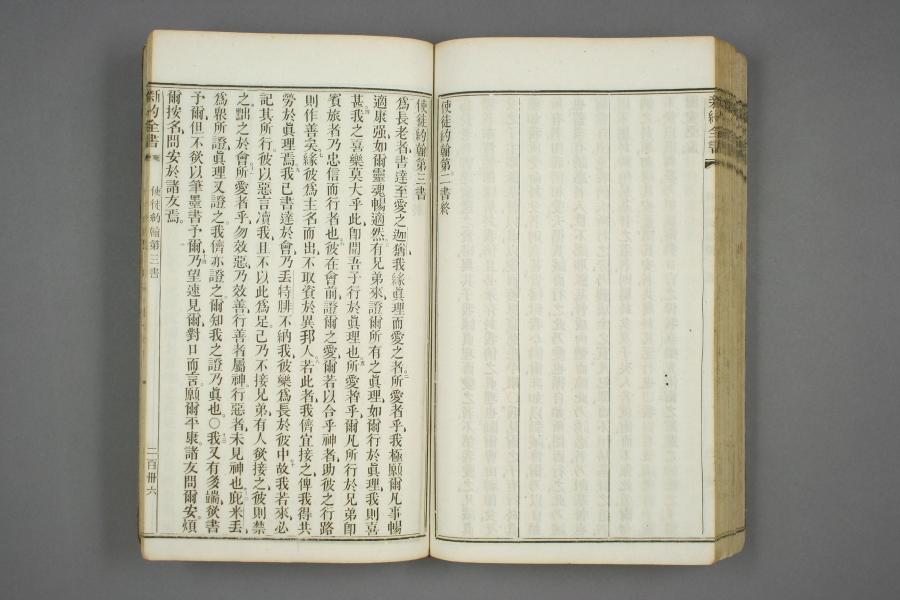 新約全書
使徒約翰第二書終
使徒約翰第三書
爲長老者書達至愛之迦猶我緣眞理而愛之者所愛者乎我極願爾凡事暢
適康强如爾靈魂暢適然有兄弟來證爾所有之眞理如爾行於眞理我則喜
甚我之喜樂莫大乎此卽聞吾子行於眞理也所愛者乎爾凡所行於兄弟卽
賓旅者乃忠信而行者也彼在會前證爾之愛爾若以合乎神者助彼之行路
則作善矣緣彼爲主名而出不取資於異邦人若此者我儕宜接之俾我得共
勞於眞理焉我已書達於會乃丟特腓不納我彼樂爲長於彼中故我若來必
記其所行彼以惡言凟我且不以此爲足己乃不接兄弟有人欲接之彼則禁
之黜之於會所愛者乎勿效惡乃效善行善者屬神行惡者未見神也底米丟
爲衆所證眞理又證之我儕亦證之爾知我之證乃眞也〇我又有多端欲書
予爾但不欲以筆墨書予爾乃望速見爾對口而言願爾平康諸友問爾安煩
爾按名問安於諸友焉
新約全書
使徒約翰第三書
二百卅六